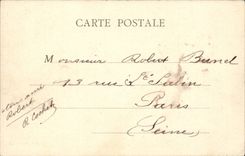 CARTE POSTALE
Monsieur Robert Brunel
13 rue St Sabin
Paris
Seine
Robert